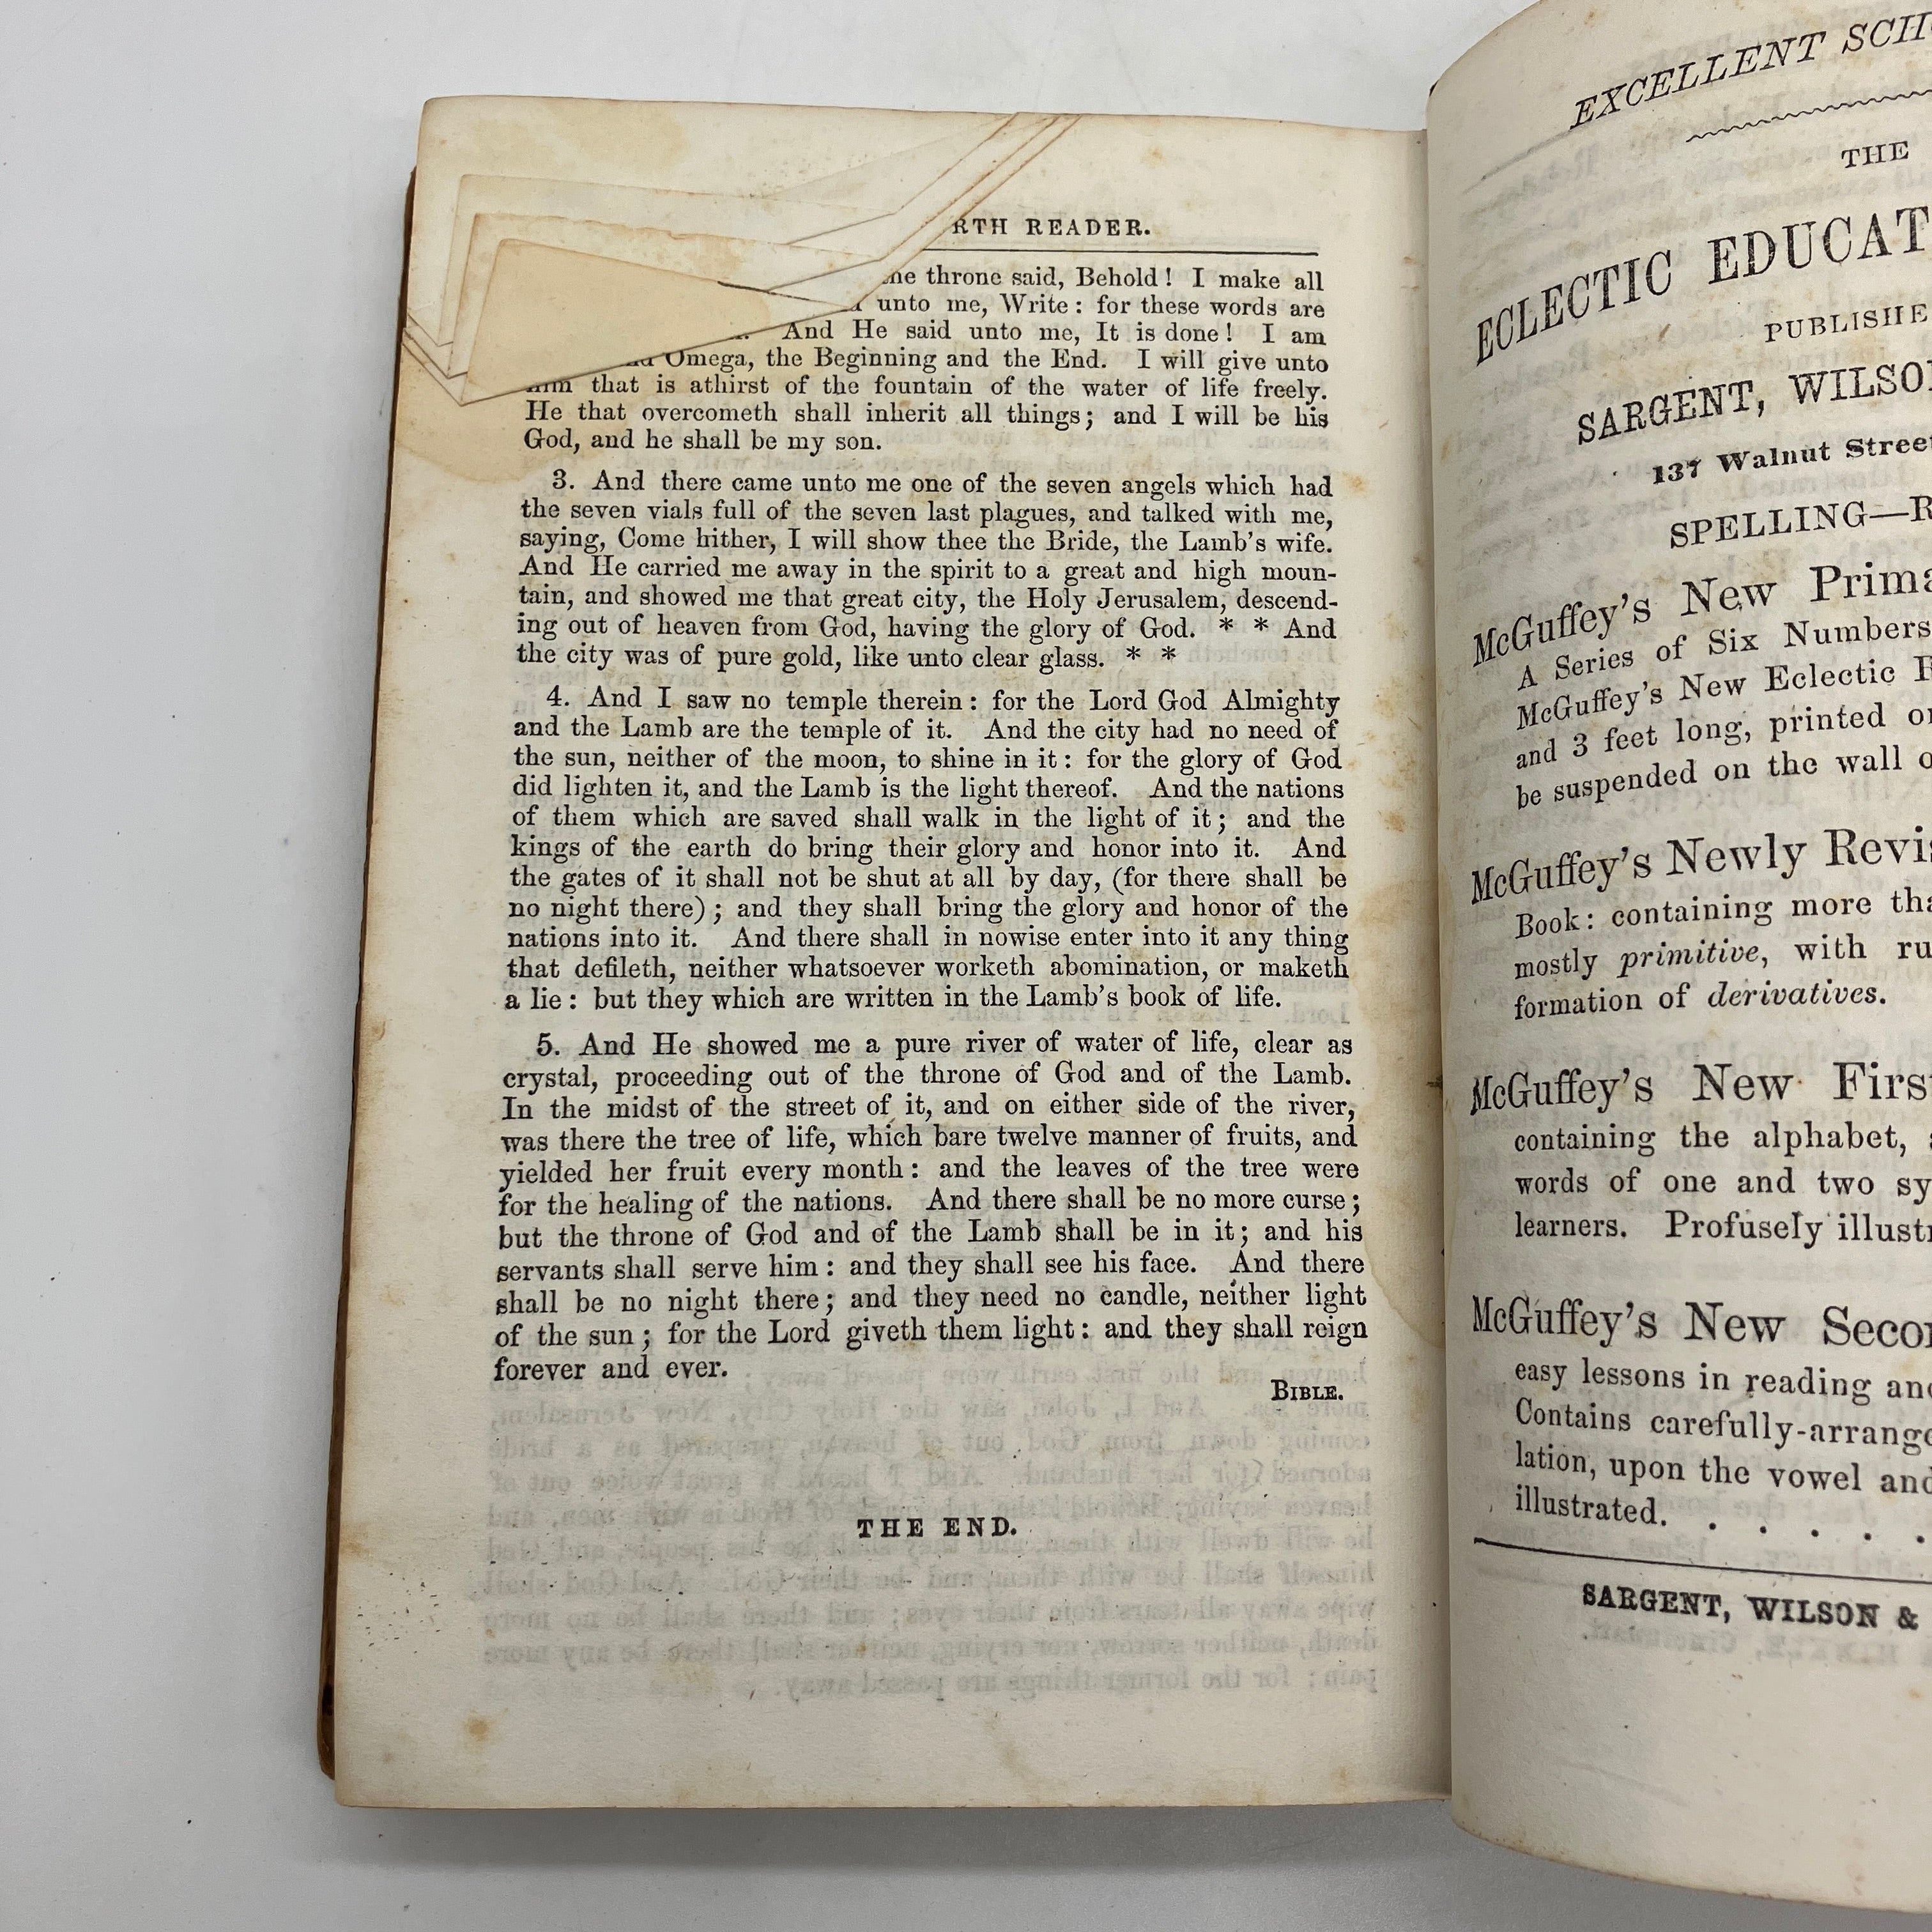 RTH READER.
he throne said, Behold! I make all
unto me, Write: for these words are
And He said unto me, It is done! I am
Omega, the Beginning and the End. I will give unto
him that is athirst of the fountain of the water of life freely.
He that overcometh shall inherit all things; and I will be his
God, and he shall be my son.
3. And there came unto me one of the seven angels which had
the seven vials full of the seven last plagues, and talked with me,
saying, Come hither, I will show thee the Bride, the Lamb's wife.
And He carried me away in the spirit to a great and high moun-
tain, and showed me that great city, the Holy Jerusalem, descend-
ing out of heaven from God, having the glory of God. * * And
the city was of pure gold, like unto clear glass. * *
4. And I saw no temple therein: for the Lord God Almighty
and the Lamb are the temple of it. And the city had no need of
the sun, neither of the moon, to shine in it: for the glory of God
did lighten it, and the Lamb is the light thereof. And the nations
of them which are saved shall walk in the light of it; and the
kings of the earth do bring their glory and honor into it. And
the gates of it shall not be shut at all by day, (for there shall be
no night there); and they shall bring the glory and honor of the
nations into it. And there shall in nowise enter into it any thing
that defileth, neither whatsoever worketh abomination, or maketh
a lie: but they which are written in the Lamb's book of life.
5. And He showed me a pure river of water of life, clear as
crystal, proceeding out of the throne of God and of the Lamb.
In the midst of the street of it, and on either side of the river,
was there the tree of life, which bare twelve manner of fruits, and
yielded her fruit every month: and the leaves of the tree were
for the healing of the nations. And there shall be no more curse;
but the throne of God and of the Lamb shall be in it; and his
servants shall serve him: and they shall see his face. And there
shall be no night there; and they need no candle, neither light
of the sun; for the Lord giveth them light: and they shall reign
forever and ever.
BIBLE.
THE END.
EXCELLENT SCH
THE
ECLECTIC EDUCAT
PUBLISHE
SARGENT, WILSO
137 Walnut Street
SPELLING—R
McGuffey's New Prima
A Series of Six Numbers
McGuffey's New Eclectic R
and 3 feet long, printed o
be suspended on the wall o
McGuffey's Newly Revis
Book: containing more tha
mostly primitive, with ru
formation of derivatives.
McGuffey's New First
containing the alphabet,
words of one and two sy
learners. Profusely illust
McGuffey's New Seco
easy lessons in reading an
Contains carefully-arrange
lation, upon the vowel and
illustrated. . . . . .
SARGENT, WILSON &